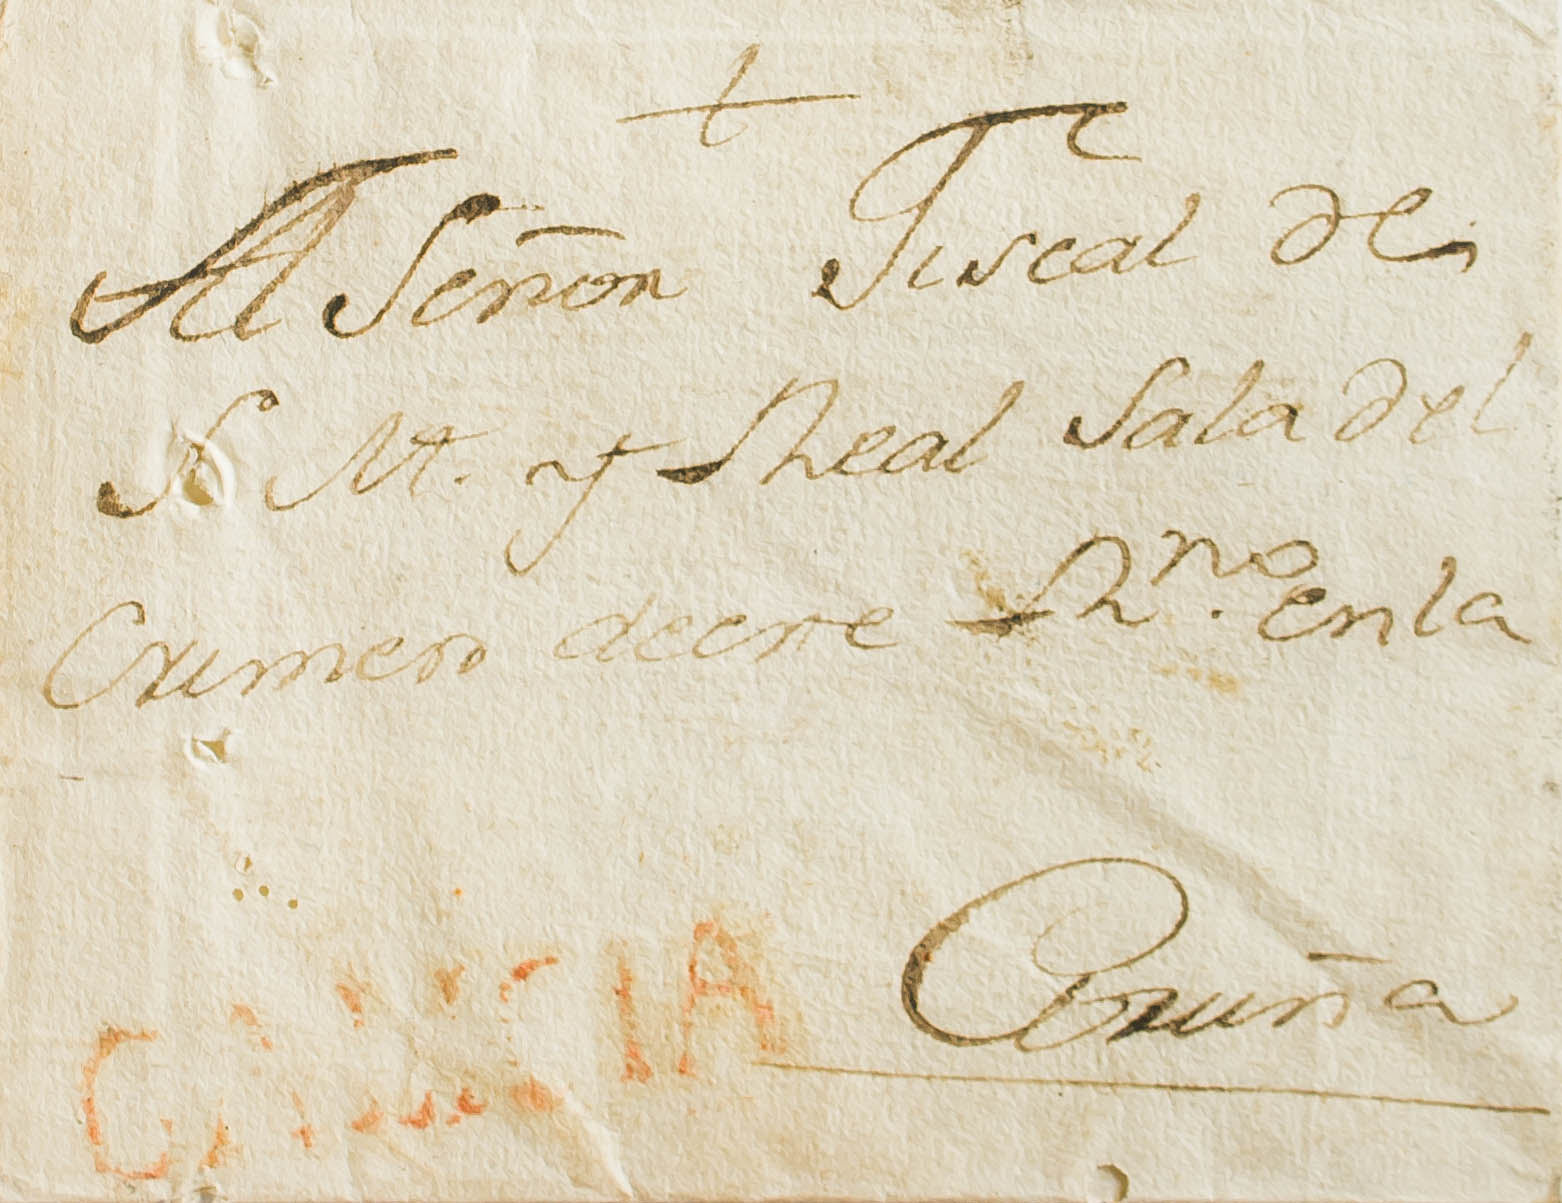 Al Señor Fiscal de
S. M. y Real Sala del
Crimen deeste R.no en la
Coruña